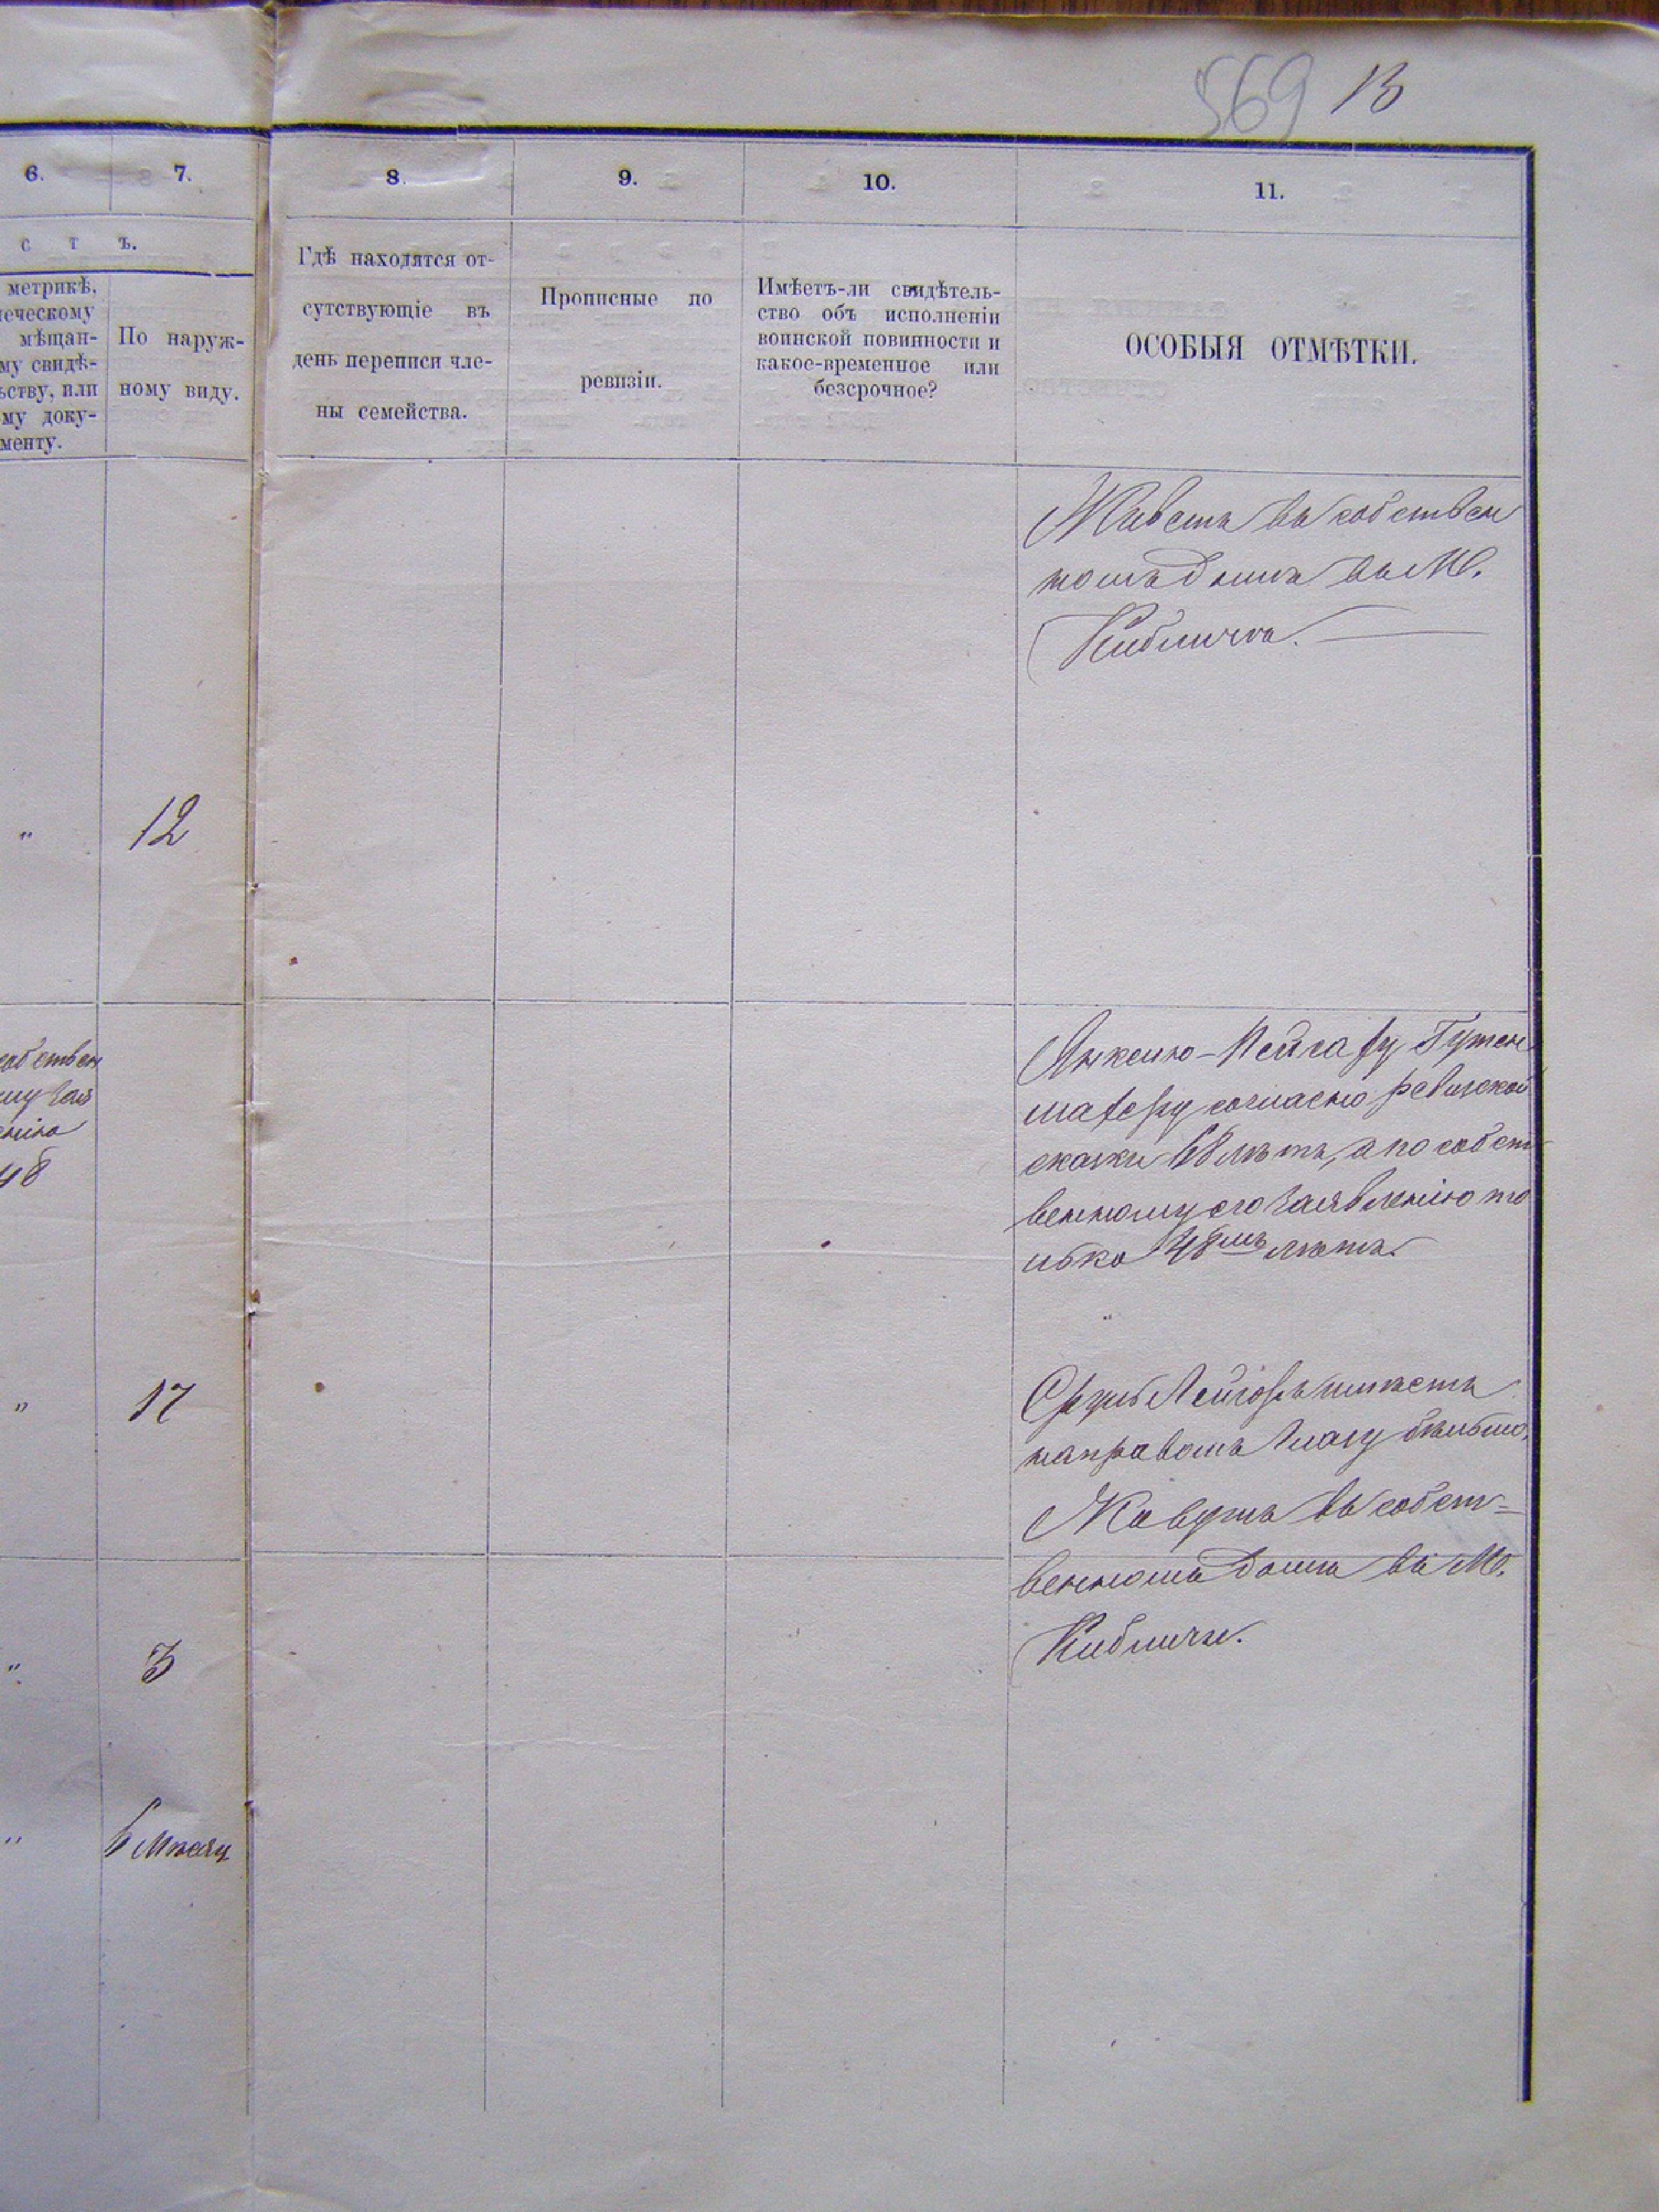 569 13
6. 7. 8. 9. 10. 11.
с т ъ.
метрикѣ,
ческому
мѣщан-
му свидѣ-
ьству, или
му доку-
менту.
По наруж-
ному виду.
Гдѣ находятся от-
сутствующіе въ
день переписи чле-
ны семейства.
Прописные по
ревизіи.
Имѣетъ-ли свидѣтель-
ство объ исполненіи
воинской повинности и
какое-временное или
безсрочное?
ОСОБЫЯ ОТМѢТКИ.
Живетъ въ собствен
номъ домѣ въ М.
Кибличѣ.
" 12
собствен
му зая
енію
48
Янкелю-Лейзеру Гутен
махеру согласно ревизской
сказки 68 лѣтъ, а по собст
венному его заявленію то
лько 48мь лѣтъ.
" 17
Сруль Лейзеръ имѣетъ
на правомъ глазу бѣльмо,
Живутъ въ собст=
венномъ домѣ въ М.
Кибличи.
" 3
" 6 мѣсяц